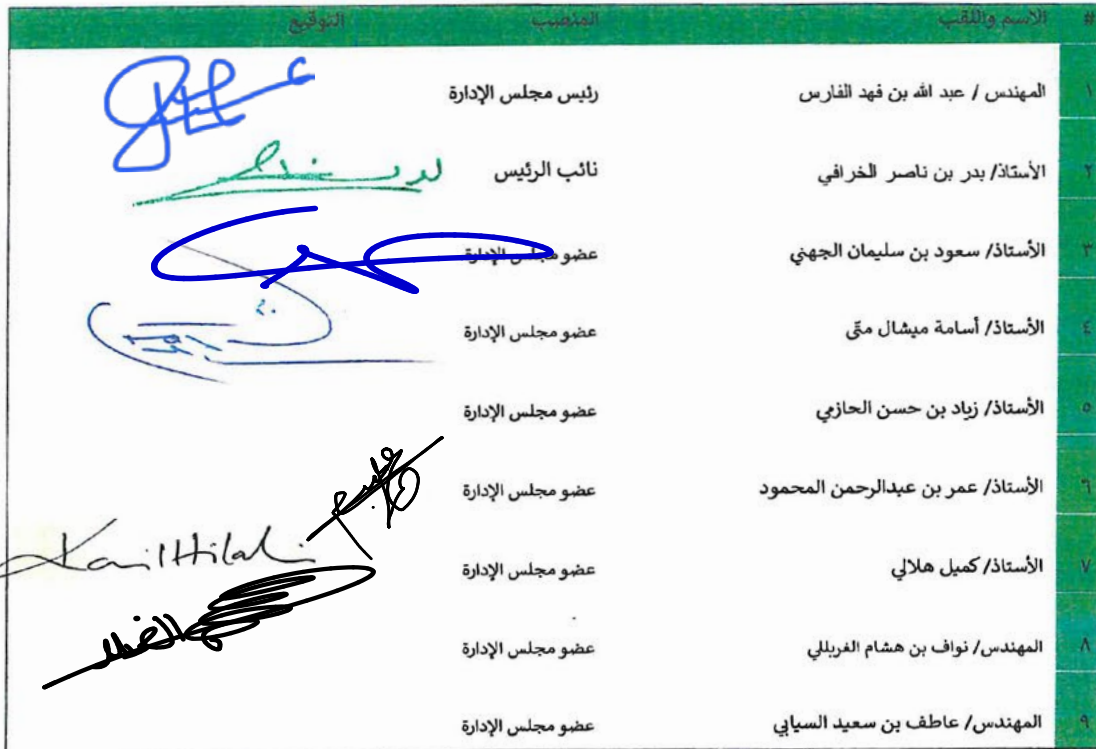 # الاسم واللقب المنصب التوقيع
١ المهندس / عبد الله بن فهد الفارس رئيس مجلس الإدارة
٢ الأستاذ/ بدر بن ناصر الخرافي نائب الرئيس
٣ الأستاذ/ سعود بن سليمان الجهني عضو مجلس الإدارة
٤ الأستاذ/ أسامة ميشال متّى عضو مجلس الإدارة
٥ الأستاذ/ زياد بن حسن الحازمي عضو مجلس الإدارة
٦ الأستاذ/ عمر بن عبدالرحمن المحمود عضو مجلس الإدارة
٧ الأستاذ/ كميل هلالي عضو مجلس الإدارة Kamil Hilali
٨ المهندس/ نواف بن هشام الغربللي عضو مجلس الإدارة
٩ المهندس/ عاطف بن سعيد السيابي عضو مجلس الإدارة